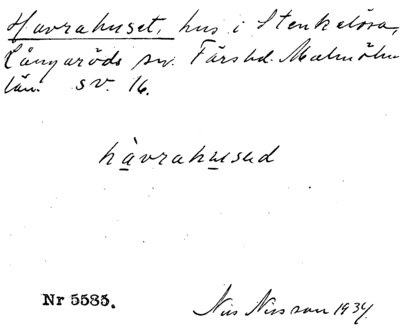 Havrahuset, hus i Stenkelösa,
Långaröds sn. Färs hd. Malmöhus
län. SV. 16.
hàvrahusəd
Nr 5585.
Nils Nilsson 1934.